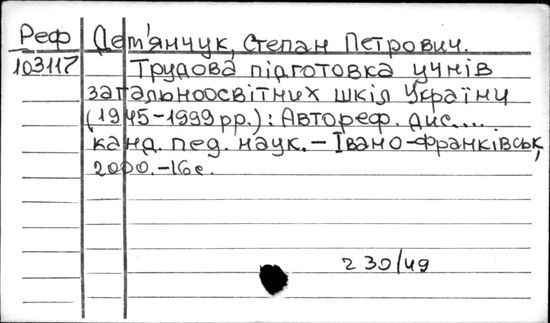 Реф Дем'янчук, Степан Петрович.
103117 Трудова підготовка учнів
загальноосвітних шкіл України
(1945-1999 рр.): Автореф. дис....
канд. пед. наук. – Івано-Франківськ,
2000. – 16 с.
230/49